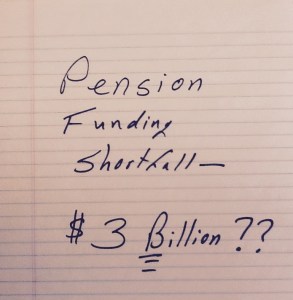 Pension
Funding
Shortfall—
$3 Billion ??